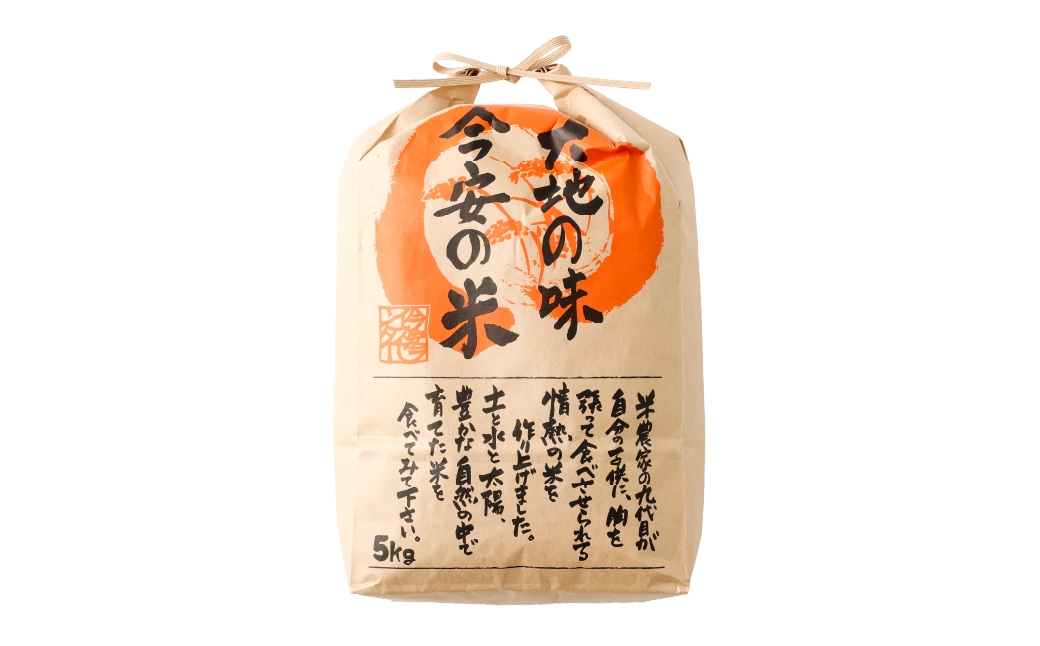 大地の味
今安の米
米農家の九代目が
自分の子供に、胸を
張って食べさせられる
情熱の米を
作り上げました。
土と水と太陽、
豊かな自然の中で
育てた米を
食べてみて下さい。
5kg